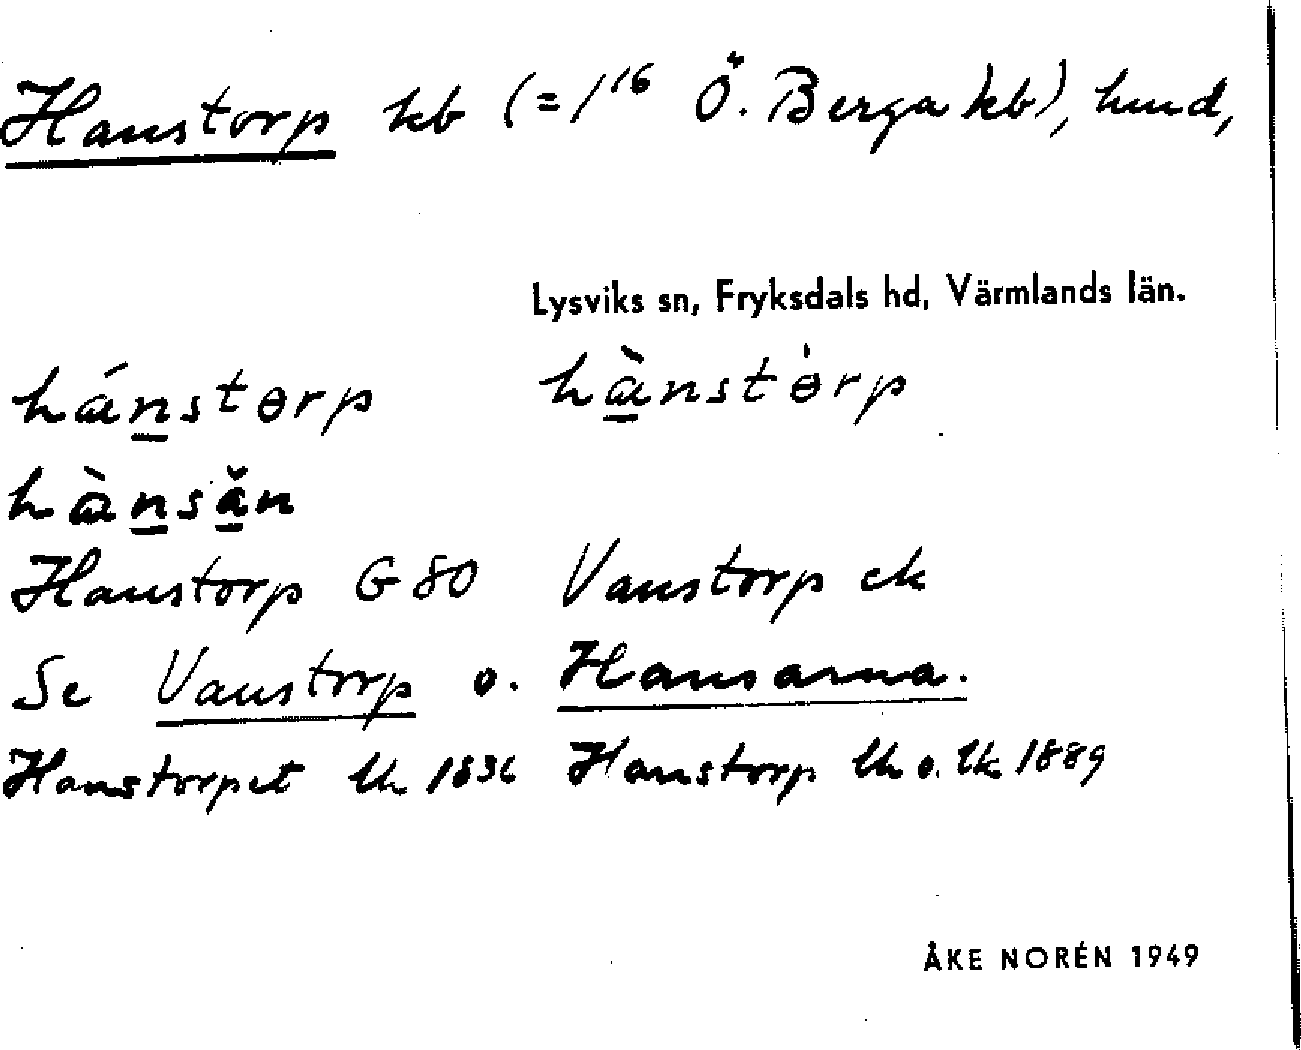 Hanstorp kb (=1/16 Ö. Berga kb), hmd,
Lysviks sn, Fryksdals hd, Värmlands län.
hánstɵrp hànstɵ̇rp
hànsăn
Hanstorp G 80 Vanstorp ck
Se Vanstorp o. Hansarna.
Hanstorpet lk 1836 Hanstorp lk o. lk 1889
ÅKE NORÉN 1949